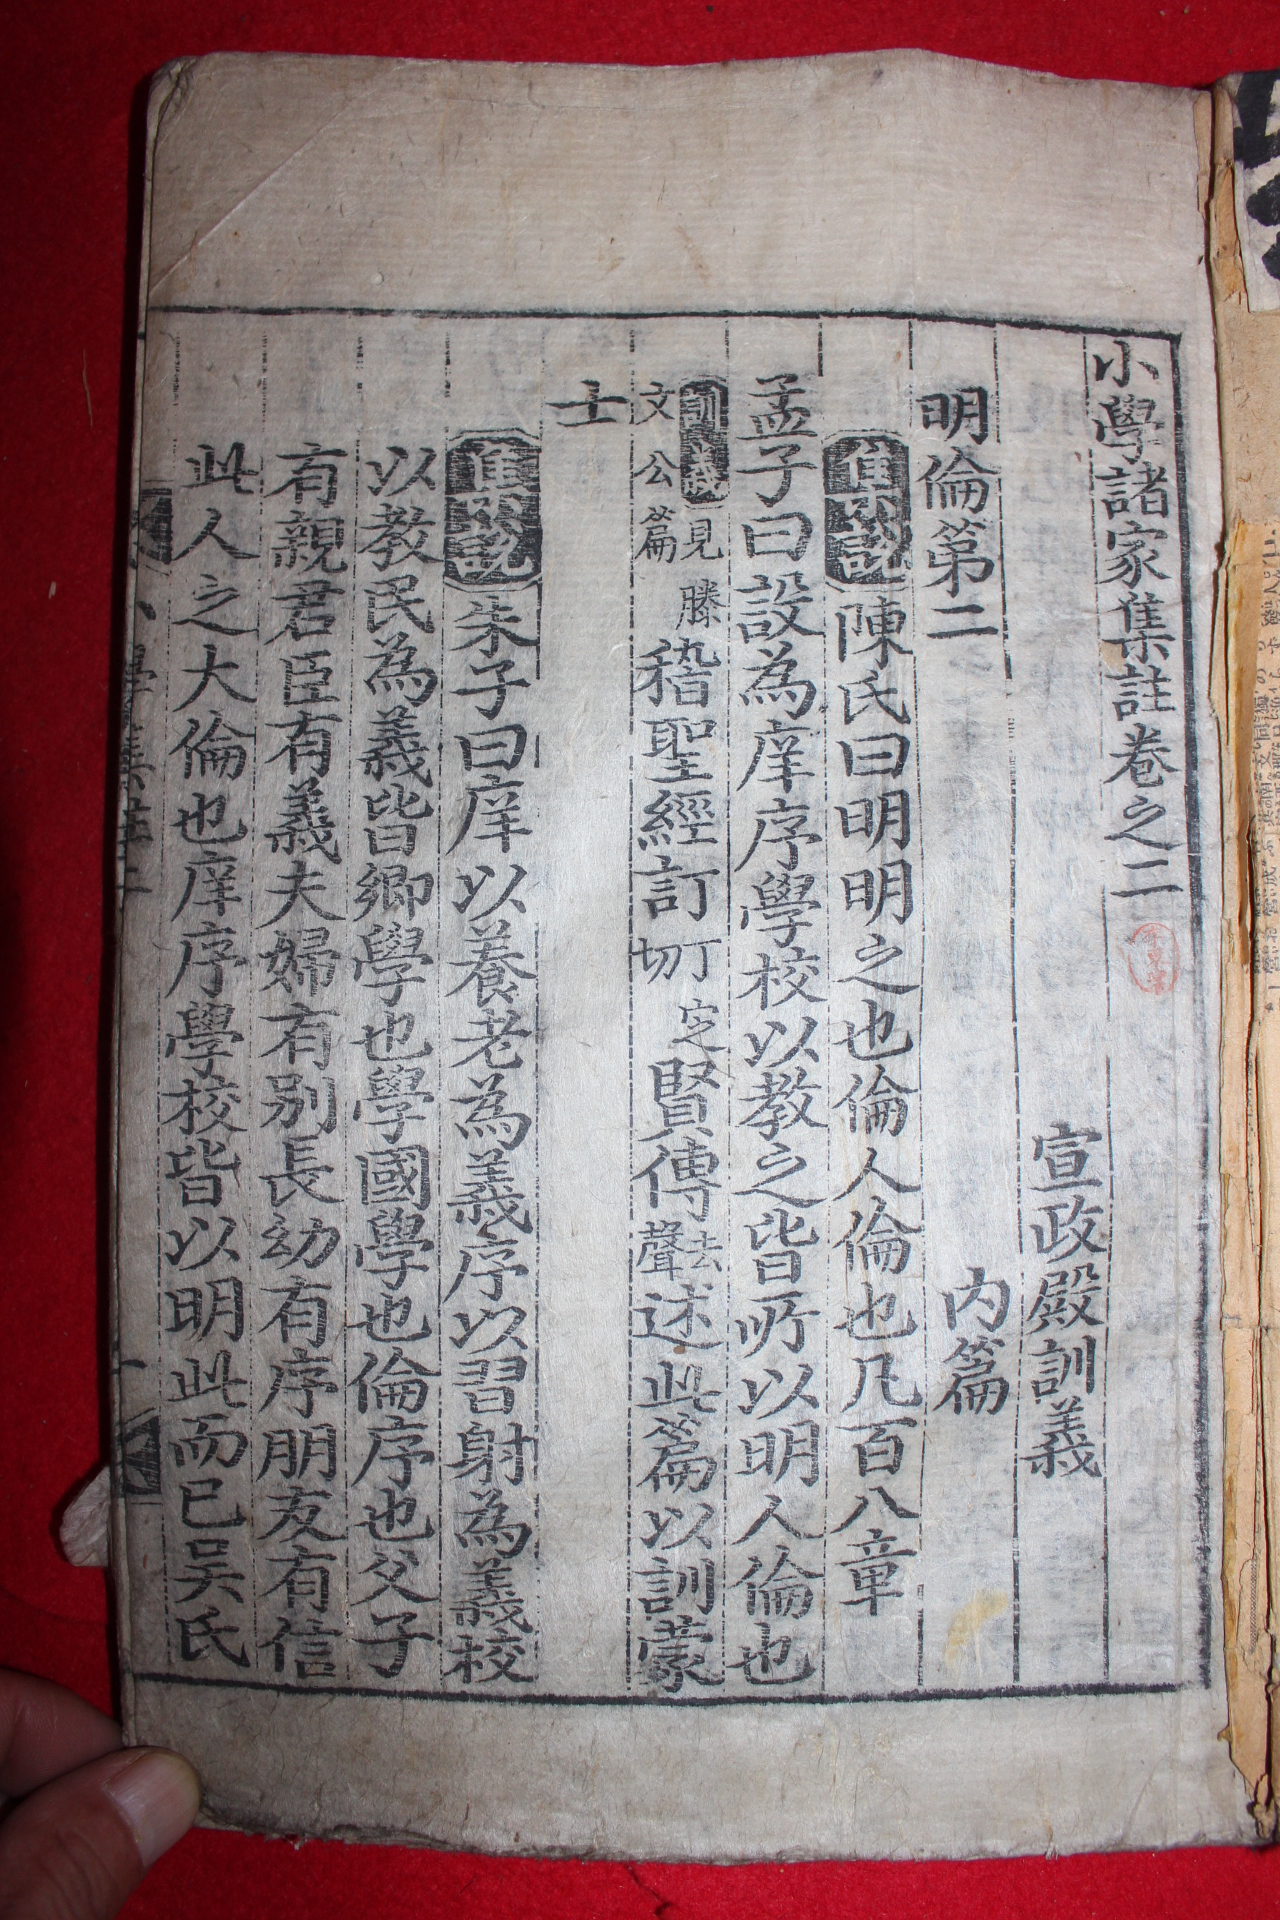 小學諸家集註卷之二
宣政殿訓義
內篇
明倫第二
集說陳氏曰明明之也倫人倫也凡百八章
孟子曰設為庠序學校以教之皆所以明人倫也
訓義見滕文公篇稽聖經訂丁定切賢傳去聲述此篇以訓蒙
士
集說朱子曰庠以養老為義序以習射為義校
以教民為義皆鄕學也學國學也倫序也父子
有親君臣有義夫婦有別長幼有序朋友有信
此人之大倫也庠序學校皆以明此而已吳氏